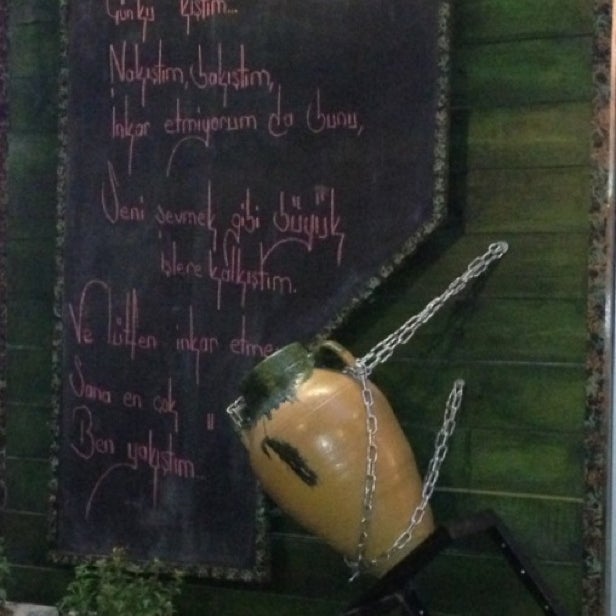 Çünkü kıştım...
Nakıştım, bakıştım,
İnkar etmiyorum da bunu,
Seni sevmek gibi büyük
işlere kalkıştım.
Ve lütfen inkar etme
Sana en çok
Ben yakıştım...
"